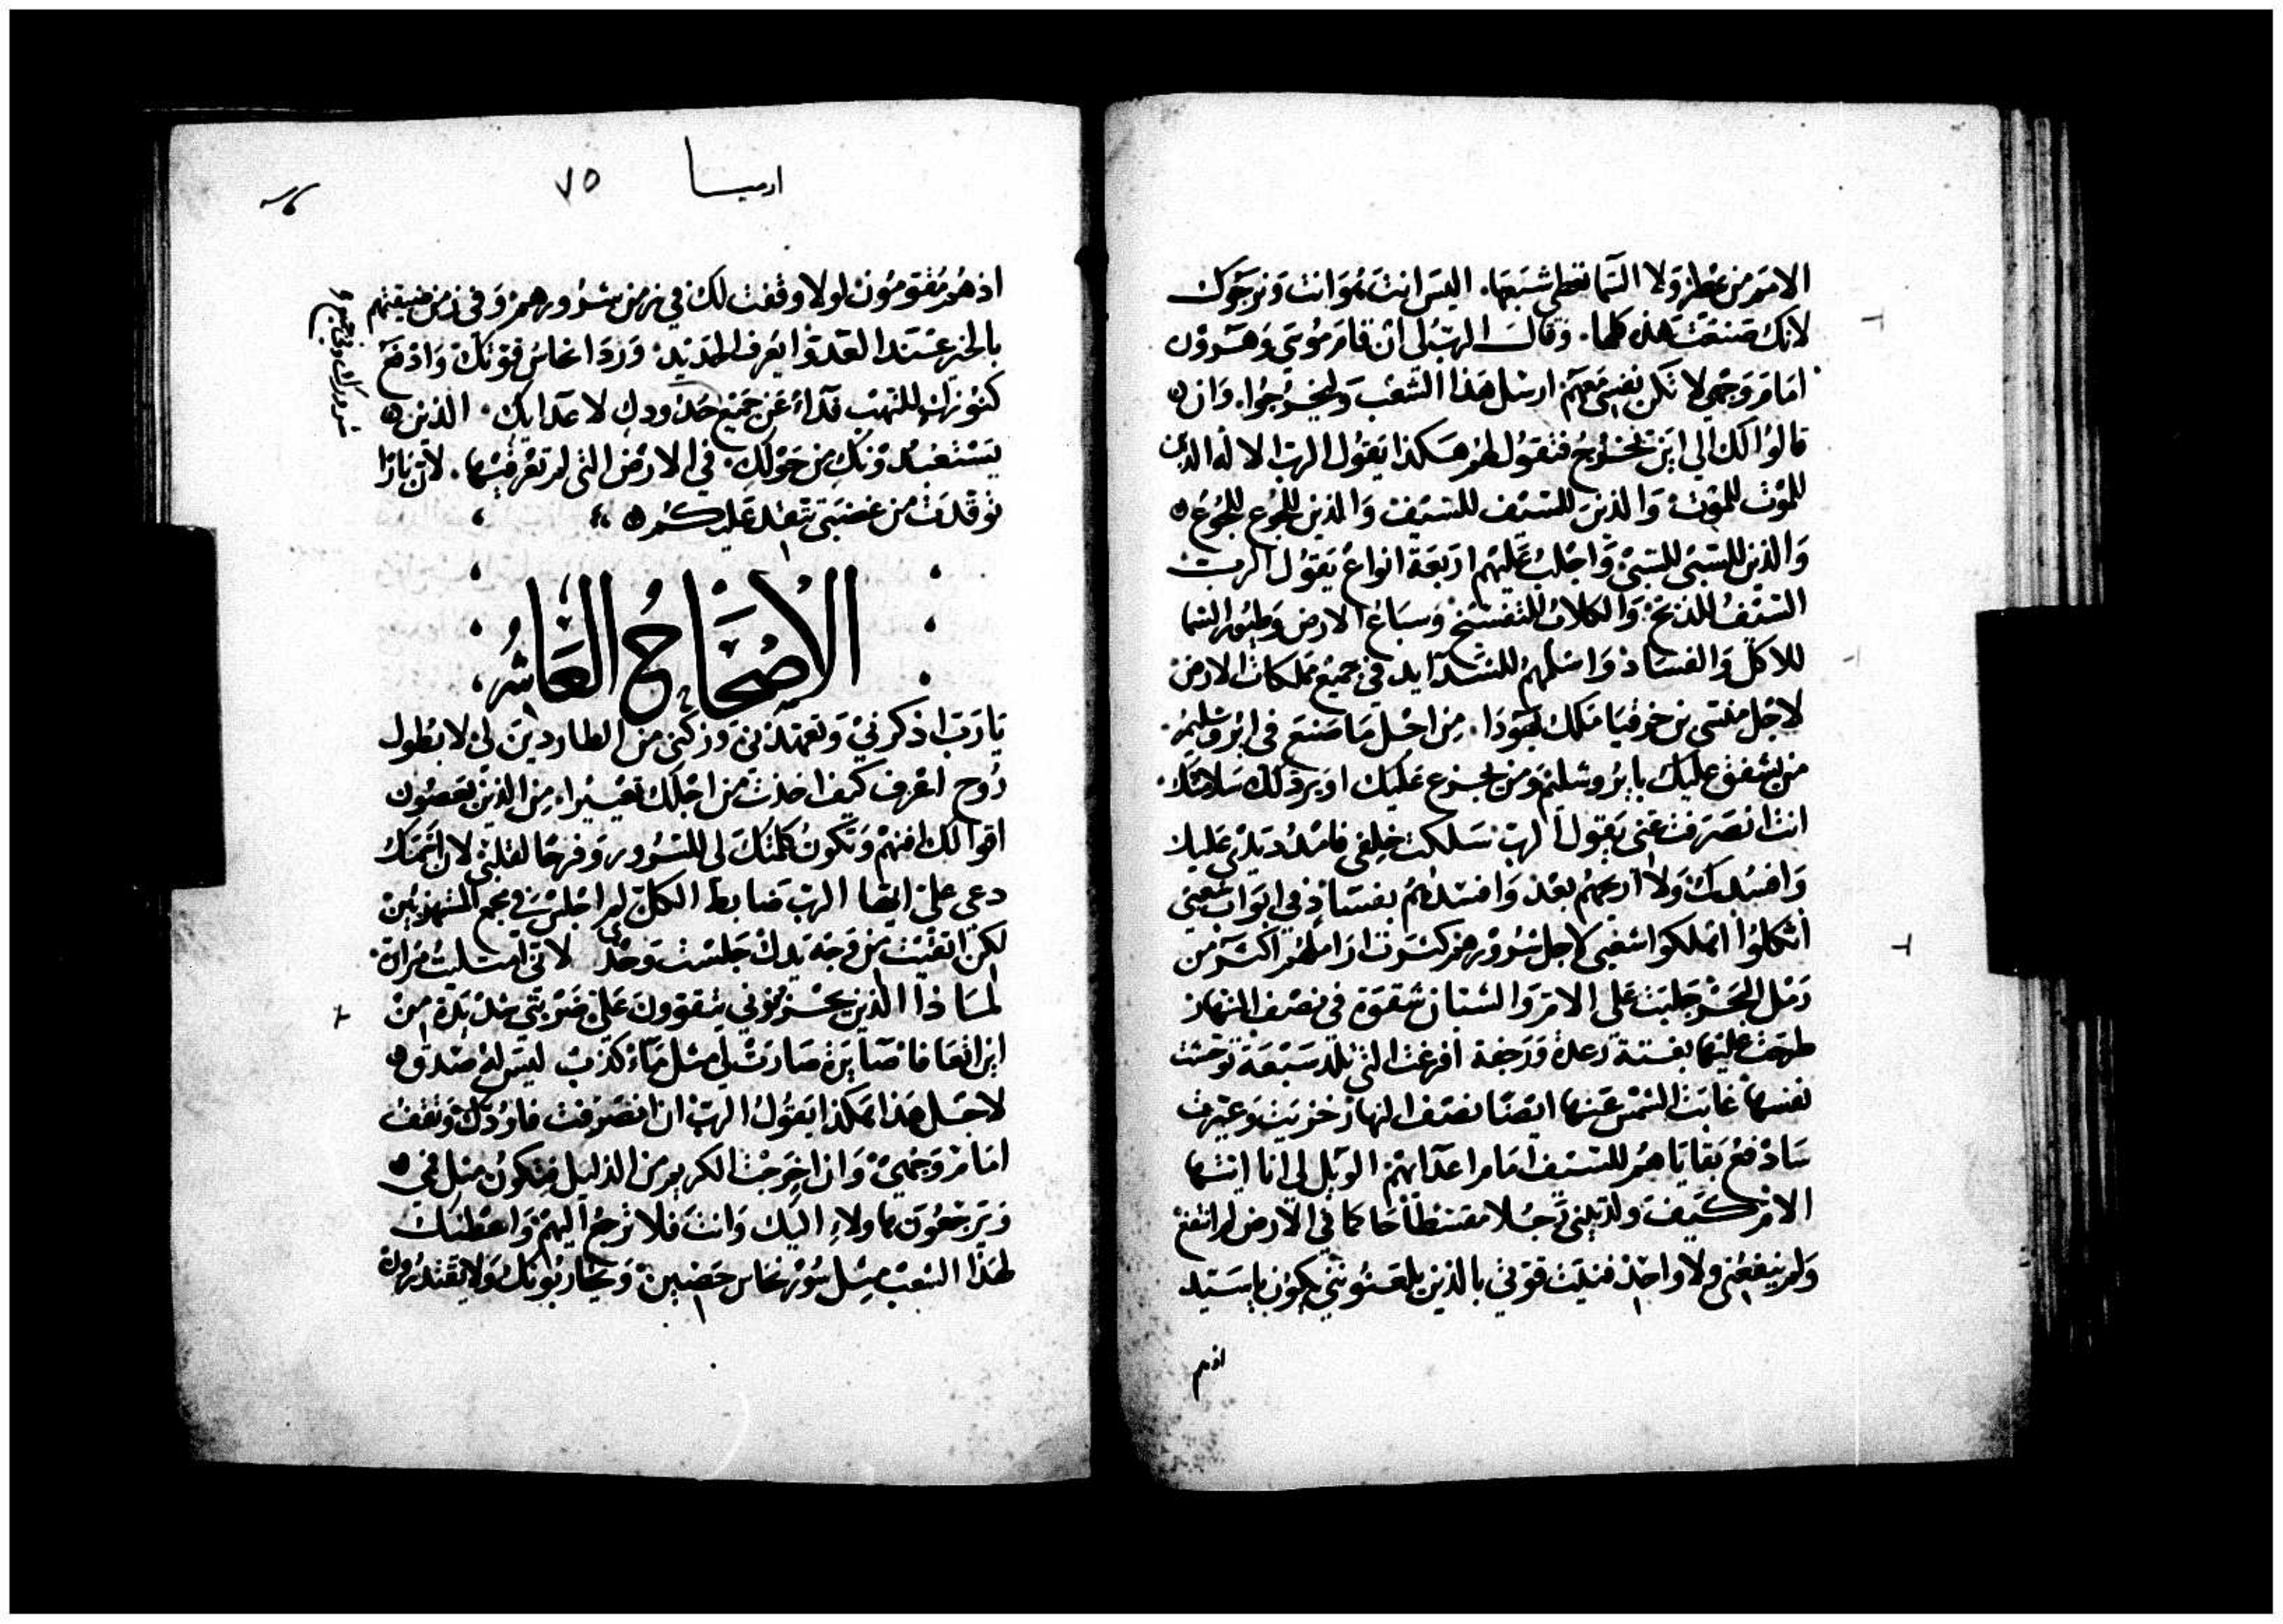 الامم من يمطر ولا السما تعطي شبعها. اليس انت هو وانت ونرجوك
لانك صنعت هذه كلها. وقال الرب لي ان قام موسى وهرون
امام وجهي لا تكن نفسي معهم ارسل هذا الشعب وليخرجوا. وان
قالوا لك الي اين نخرج فتقول لهم هكذا يقول الرب الاله الذين
للموت للموت والذين للسيف للسيف والذين للجوع للجوع
والذين للسبي للسبي واجلب عليهم اربعة انواع يقول الرب
السيف للذبح والكلاب للتفسخ وسباع الارض وطيور السما
للاكل والفساد واسلمهم للشدايد في جميع مملكات الارض
لاجل منسي بن حزقيا ملك يهودا. من اجل ما صنع في ايروشليم
من يشفق عليك يا يروشليم ومن يجزع عليك او يرد لك سلامتك
انت انصرفت عني يقول الرب سلكت خلفي فامد يدي عليك
وافسدك ولا ارحمهم بعد وافسدهم بفساد في ابواب شعبي
اثكلوا اهلكوا شعبي لاجل شرورهم كثرت اراملهم اكثر من
رمل البحر جلبت علي الام والشبان شقوة في نصف النهار
طرحت عليها بغتة رعدة ورجفة افرغت التي تلد سبعة توحشت
نفسها غابت الشمس عنها ايضا نصف النهار خزيت وعيرت
سادفع بقاياهم للسيف امام اعدايهم الويل لي انا ايتها
الام كيف ولدتيني رجلا مقسطا حاكما في الارض لم انفع
ولم ينفعني ولا واحد فنيت قوتي بالذين يلعنونني يكون يا سيد
اذهم
ارميا ٧٥
اذ هم يقومون لولا وقفت لك في زمن شرورهم وفي زمن ضيقتهم
بالخير عند العدو ايعرف الحديد. ورداء نحاس قوتك وادفع
كنوزك للنهب فداء عن جميع حدودك لاعدايك. الذين
يستعبدونك من حولك. في الارض التي لم تعرفيها. لان نارا
توقدت من غضبي تتقد عليكم
الاصحاح العاشر
يا رب اذكرني وتعهدني وزكني من الطاردين لي لا بطول
روح اعرف كيف اخذت من اجلك تعييرا. من الذين يعصون
اقوالك افنهم وتكون كلمتك لي للسرور وفرحا لقلبي لان اسمك
دعي علي ايها الرب ضابط الكل لم اجلس في مجمع المستهزيين
لكن اتقيت من وجه يدك جلست وحدي لاني امتليت مرارة
لماذا الذين يحزنوني يتقوون علي ضربتي شديدة من
اين اشفا فاضاير صارت لي مثل ماء كذب ليس له صدق
لاجل هذا هكذا يقول الرب ان انصرفت فاردك وتقف
امام وجهي وان اخرجت الكريم من الذليل فتكون مثل في
ويرجعون هاولاء اليك وانت فلا ترجع اليهم واعطيك
لهذا الشعب مثل سور نحاس حصين ويحاربونك ولا يقتدرون